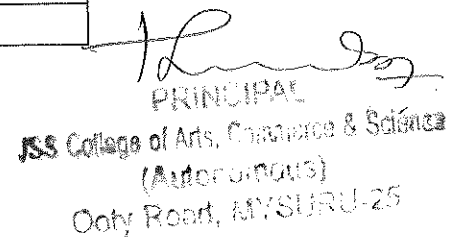 PRINCIPAL
JSS College of Arts, Commerce & Science
(Autonomous)
Ooty Road, MYSURU-25